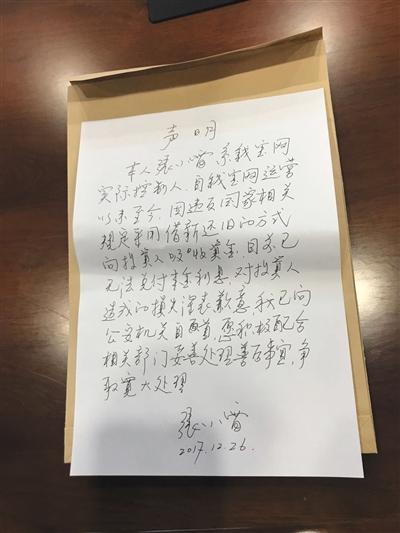 声明
本人张小雷系钱宝网
实际控制人、自钱宝网运营
以来至今，因违反国家相关
规定采用借新还旧的方式
向投资人吸收资金，目前已
无法兑付本金利息，对投资人
造成的损失深表歉意，我已向
公安机关自首，愿积极配合
相关部门妥善处理善后事宜，争
取宽大处理
张小雷
2017.12.26.